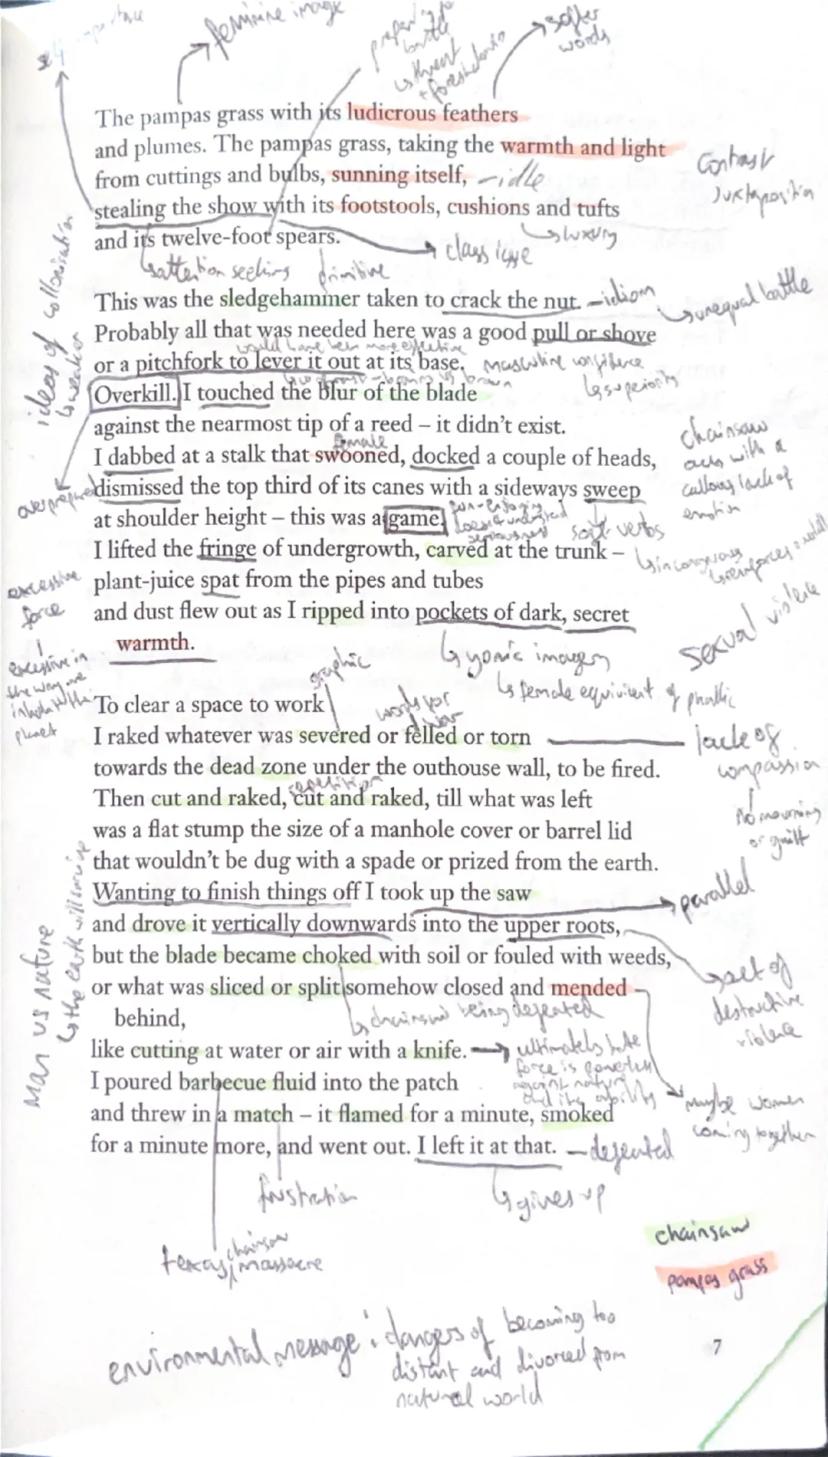 self-importance
feminine image
preparing for
battle
↳ threat
+ foreshadowing
softer
words
The pampas grass with its ludicrous feathers
and plumes. The pampas grass, taking the warmth and light
from cuttings and bulbs, sunning itself, – idle
stealing the show with its footstools, cushions and tufts
and its twelve-foot spears.
contrast
juxtaposition
↳ luxury
class issue
↳ attention seeking
primitive
ideas of colonisation
↳ weaker
This was the sledgehammer taken to crack the nut. – idiom
↳ unequal battle
Probably all that was needed here was a good pull or shove
would have been more effective
or a pitchfork to lever it out at its base.
masculine confidence
↳ superiority
Overkill. I touched the blur of the blade
against the nearmost tip of a reed – it didn't exist.
female
I dabbed at a stalk that swooned, docked a couple of heads,
overprepared
dismissed the top third of its canes with a sideways sweep
at shoulder height – this was a game.
chainsaw
acts with a
callous lack of
emotion
soft verbs
↳ incongruous
I lifted the fringe of undergrowth, carved at the trunk –
plant-juice spat from the pipes and tubes
and dust flew out as I ripped into pockets of dark, secret
warmth.
excessive
force
excessive in
the way we
planet
sexual violence
↳ yonic imagery
↳ female equivilent of phallic
graphic
words for
war
To clear a space to work
I raked whatever was severed or felled or torn
lack of
compassion
no mourning
or guilt
towards the dead zone under the outhouse wall, to be fired.
repetition
Then cut and raked, cut and raked, till what was left
was a flat stump the size of a manhole cover or barrel lid
that wouldn't be dug with a spade or prized from the earth.
Wanting to finish things off I took up the saw
parallel
and drove it vertically downwards into the upper roots,
but the blade became choked with soil or fouled with weeds,
↳ act of
destructive
violence
or what was sliced or split somehow closed and mended
behind,
↳ chainsaw being defeated
Man vs nature
↳ the earth will survive
like cutting at water or air with a knife.
ultimately brute
force is powerless
against nature
and its ability
I poured barbecue fluid into the patch
and threw in a match – it flamed for a minute, smoked
maybe women
coming together
for a minute more, and went out. I left it at that. – defeated
frustration
↳ gives up
texas chainsaw massacre
chainsaw
pampas grass
environmental message : dangers of becoming too
distant and divorced from
natural world
7